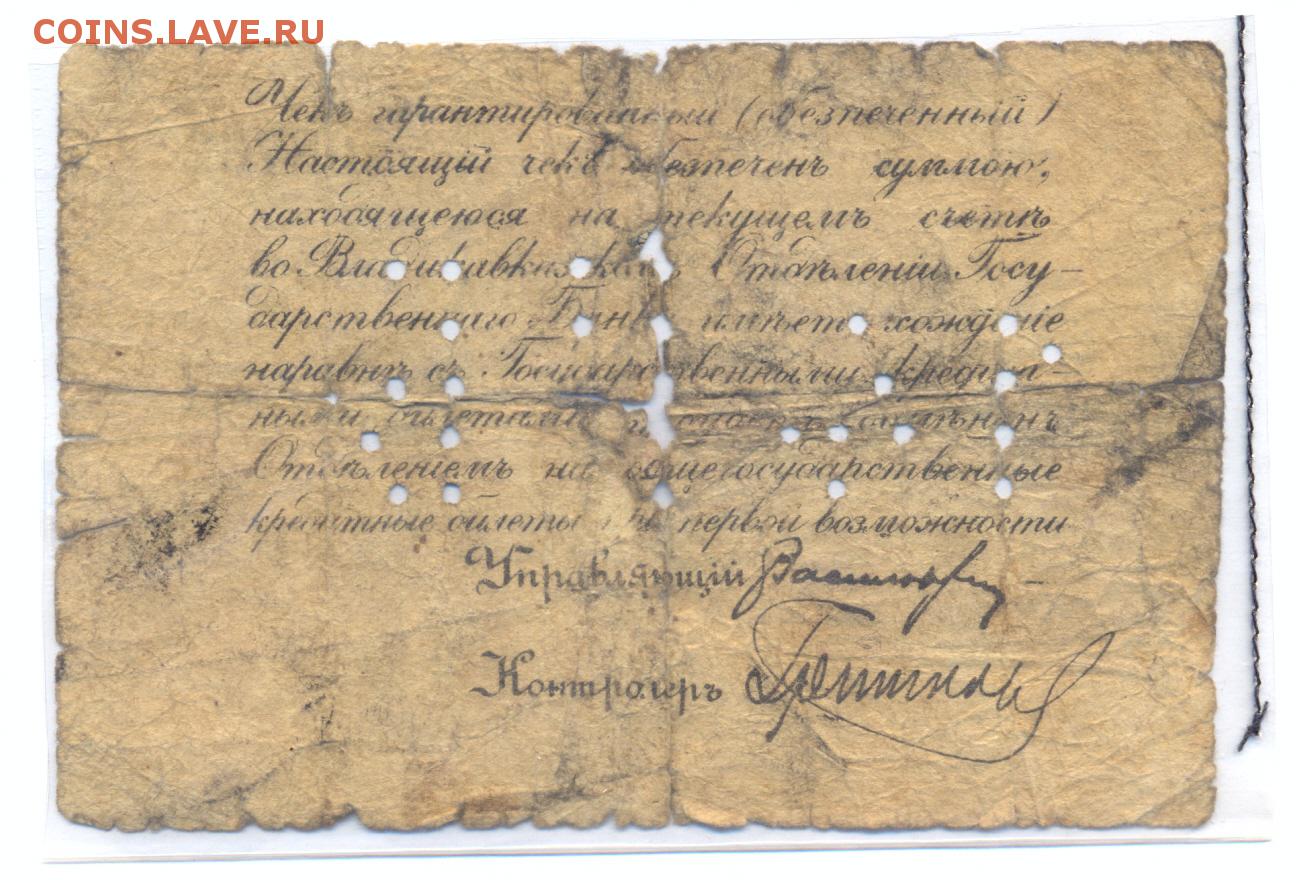 COINS.LAVE.RU
Чекъ гарантированный (обезпеченный)
Настоящій чекъ обезпеченъ суммою,
находящеюся на текущемъ счетѣ
во Владикавказскомъ Отдѣленіи Госу-
дарственнаго Банка имѣетъ хожденіе
наравнѣ съ Государственными кредит-
ными билетами и обмѣненъ
Отдѣленіемъ на общегосударственные
кредитные билеты при первой возможности
Управляющій
Контролеръ